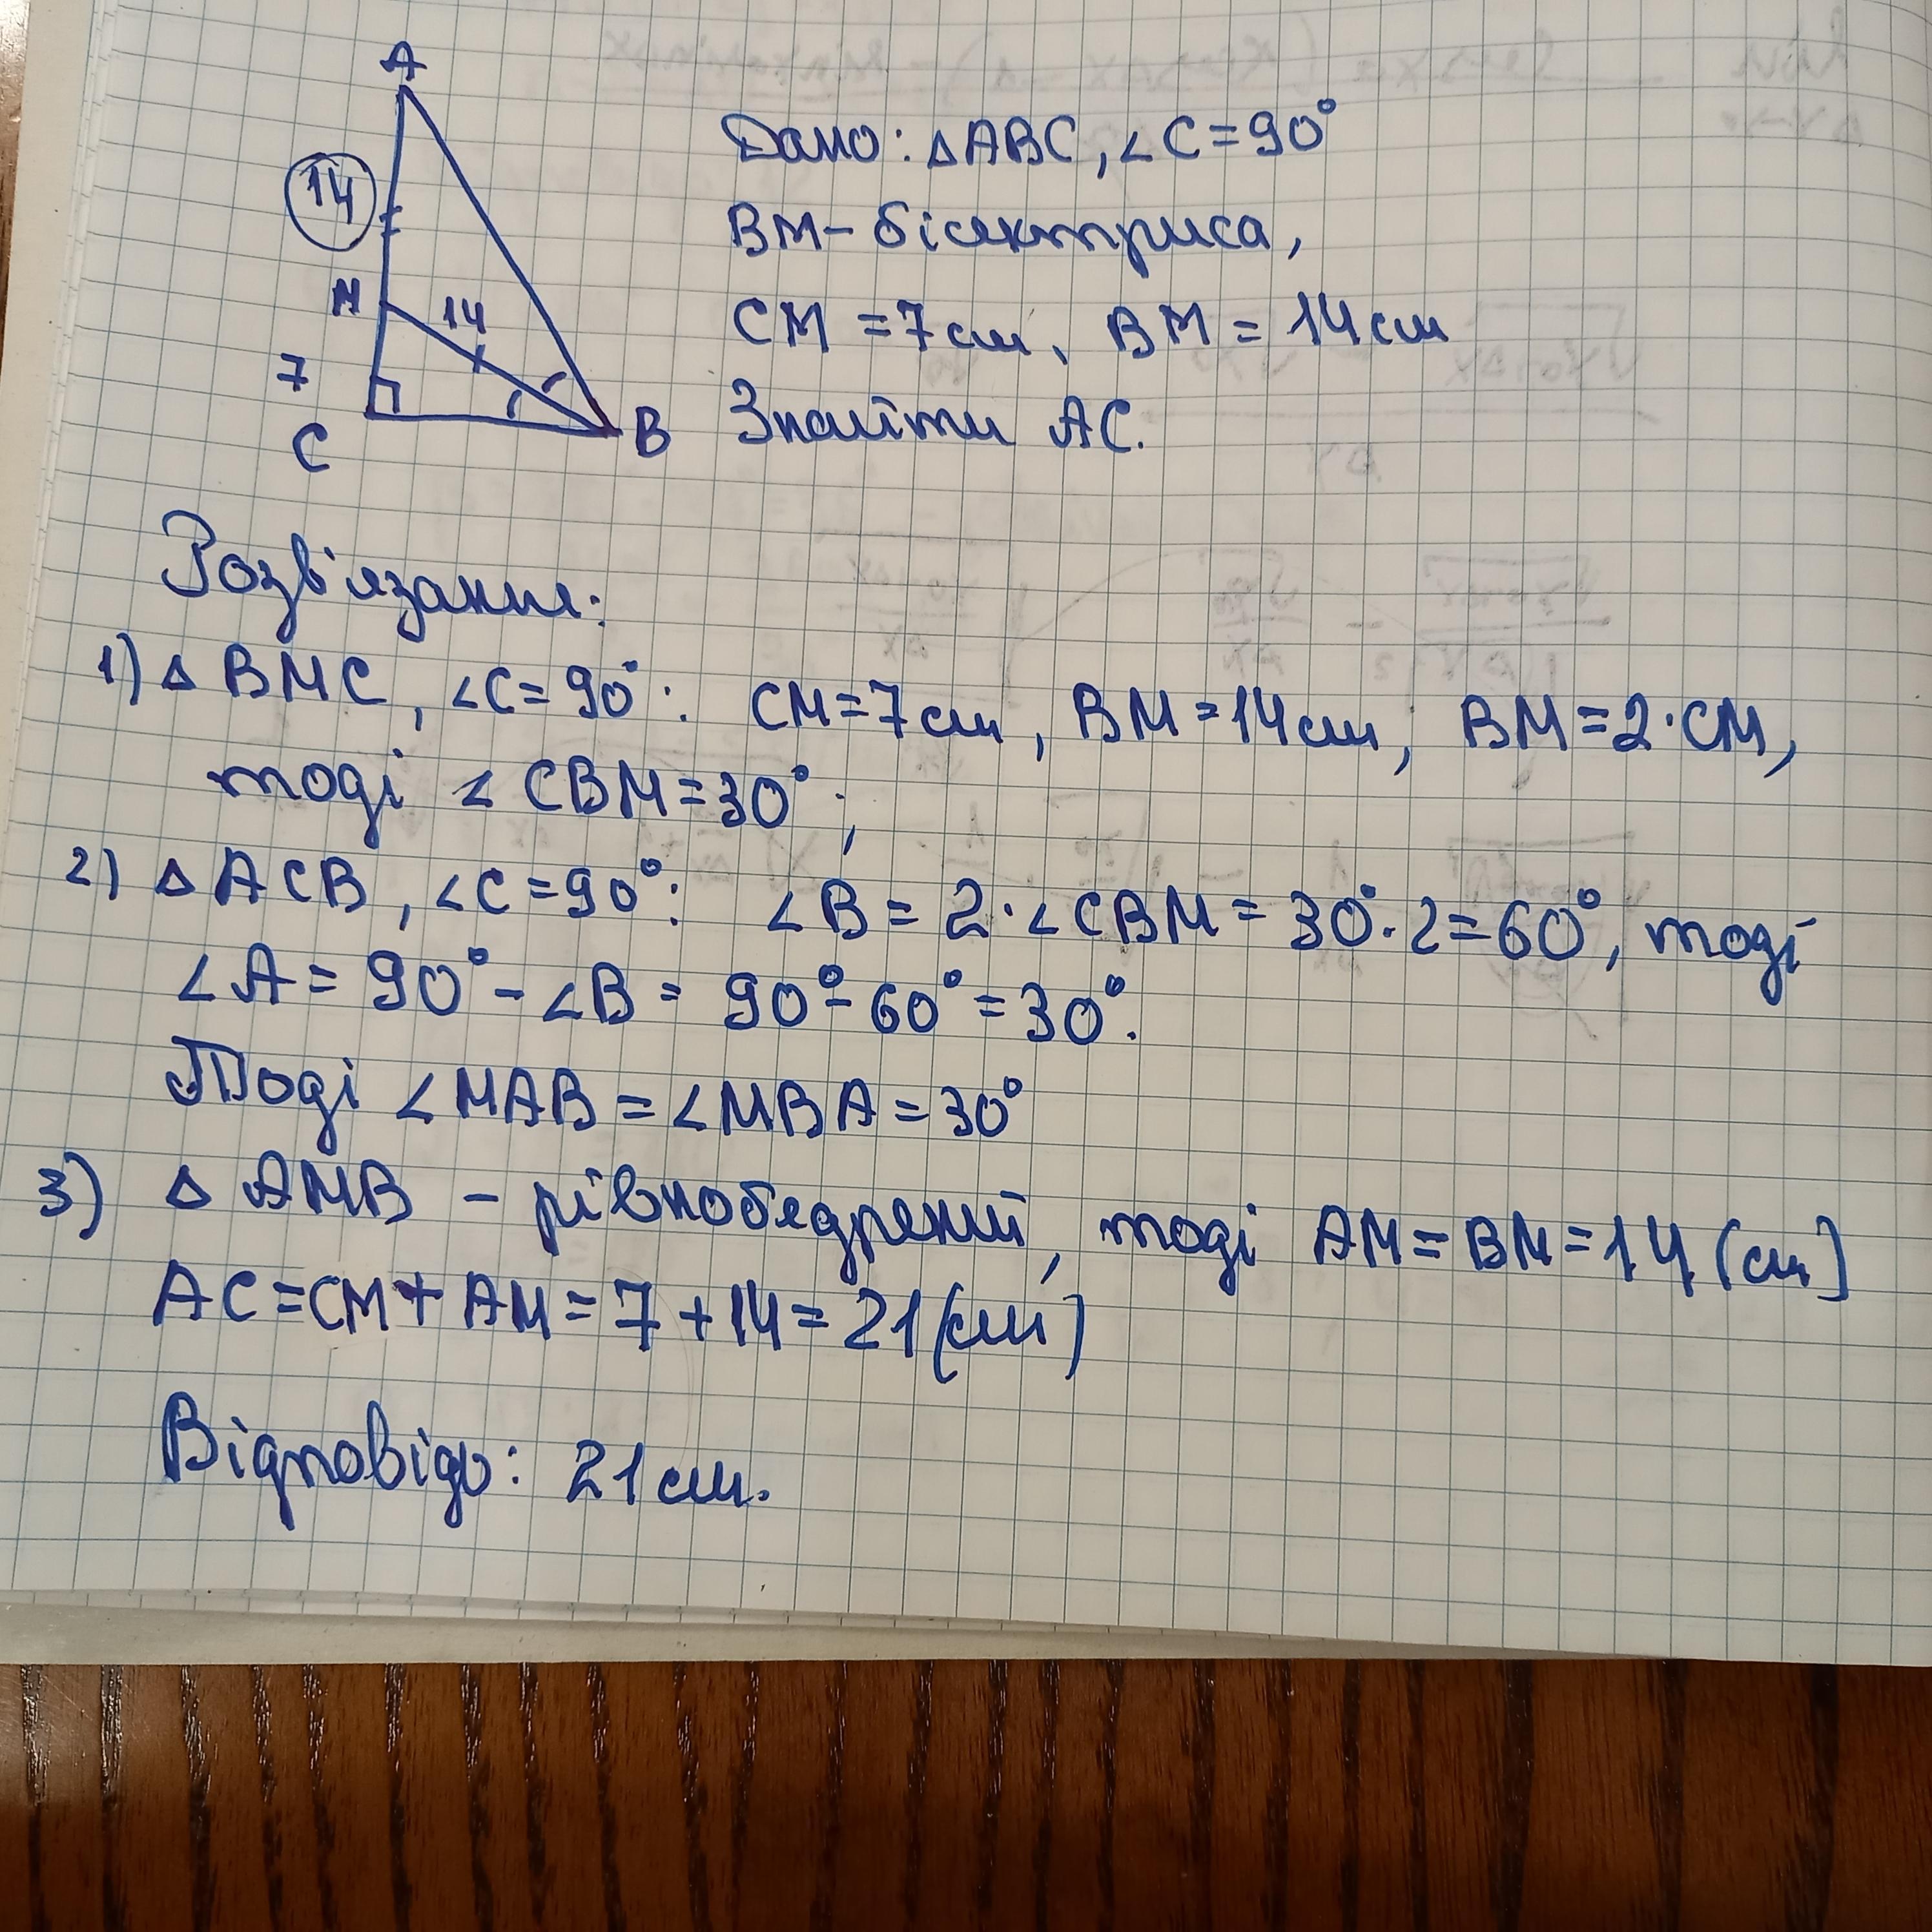 A
14
M
14
7
C
B
Дано: △ABC, ∠C=90°
BM - бісектриса,
CM = 7 см, BM = 14 см
Знайти AC.
Розв'язання:
1) △ BMC, ∠C=90°: CM=7 см, BM=14 см, BM=2·CM,
тоді ∠CBM=30°;
2) △ACB, ∠C=90°: ∠B = 2·∠CBM = 30°·2=60°, тоді
∠A= 90° - ∠B = 90° - 60° = 30°.
Тоді ∠MAB = ∠MBA = 30°
3) △ AMB - рівнобедрений, тоді AM = BM = 14 (см)
AC = CM + AM = 7 + 14 = 21 (см)
Відповідь: 21 см.